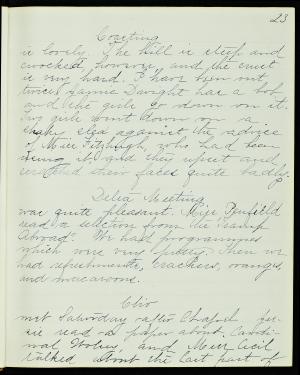 23
Coasting
is lovely. The hill is steep and
crooked, however, and the crust
is very hard. I have been out
twice. Fannie Dwight has a bob
and the girls go down on it.
Two girls went down on a
sled against the advice
of Miss Fitzhugh, who had been
using it and they upset and
scratched their faces quite badly.
Delta Meeting
was quite pleasant. Miss Penfield
read a selection from the "Tramp
Abroad". We had programmes
which were very pretty. Then we
had refreshments, crackers, oranges,
and macaroons.
Clio
met Saturday after Chapel.
read a paper about Cardi-
nal Wolsey, and Miss Cecil
talked about the last part of